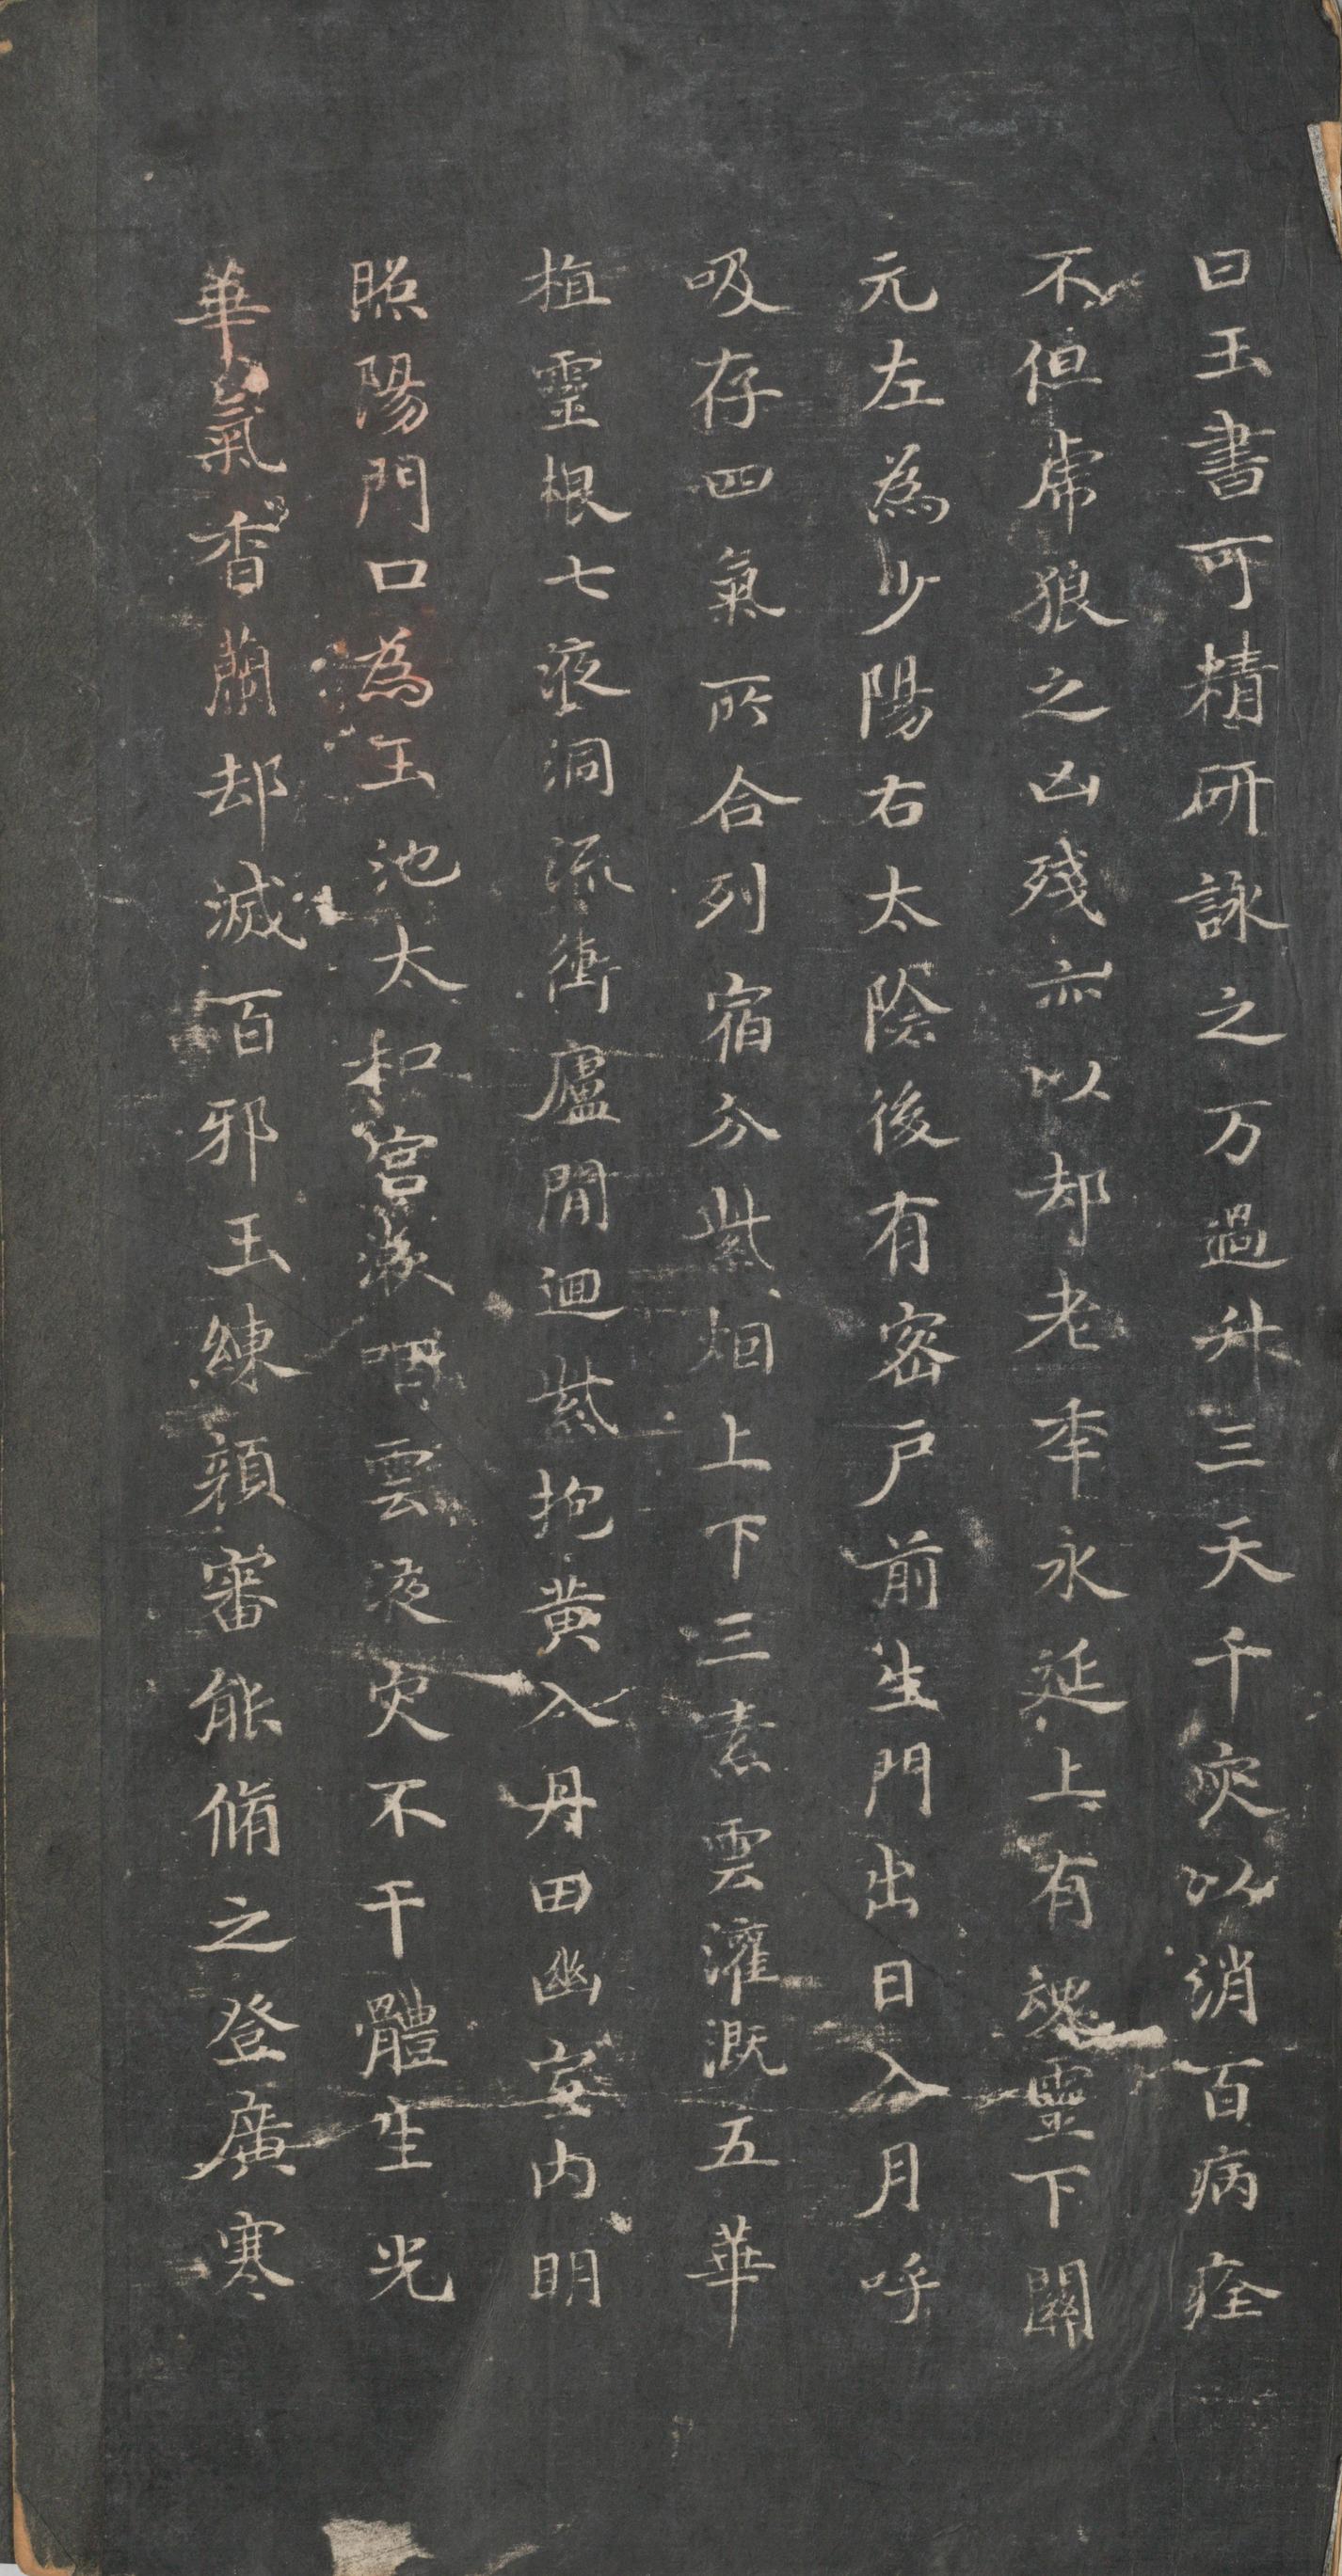 曰玉書可精研詠之万過升三天千灾以消百病痊
不但虎狼之凶殘亦以却老年永延上有魂靈下關
元左為少陽右太陰後有密戶前生門出日入月呼
吸存四氣所合列宿分紫烟上下三素雲灌溉五華
植靈根七液洞流衝廬間迴紫抱黃入丹田幽室内明
照陽門口為玉池太和宮漱咽雲液灾不干體生光
華氣香蘭却滅百邪玉練顏審能脩之登廣寒